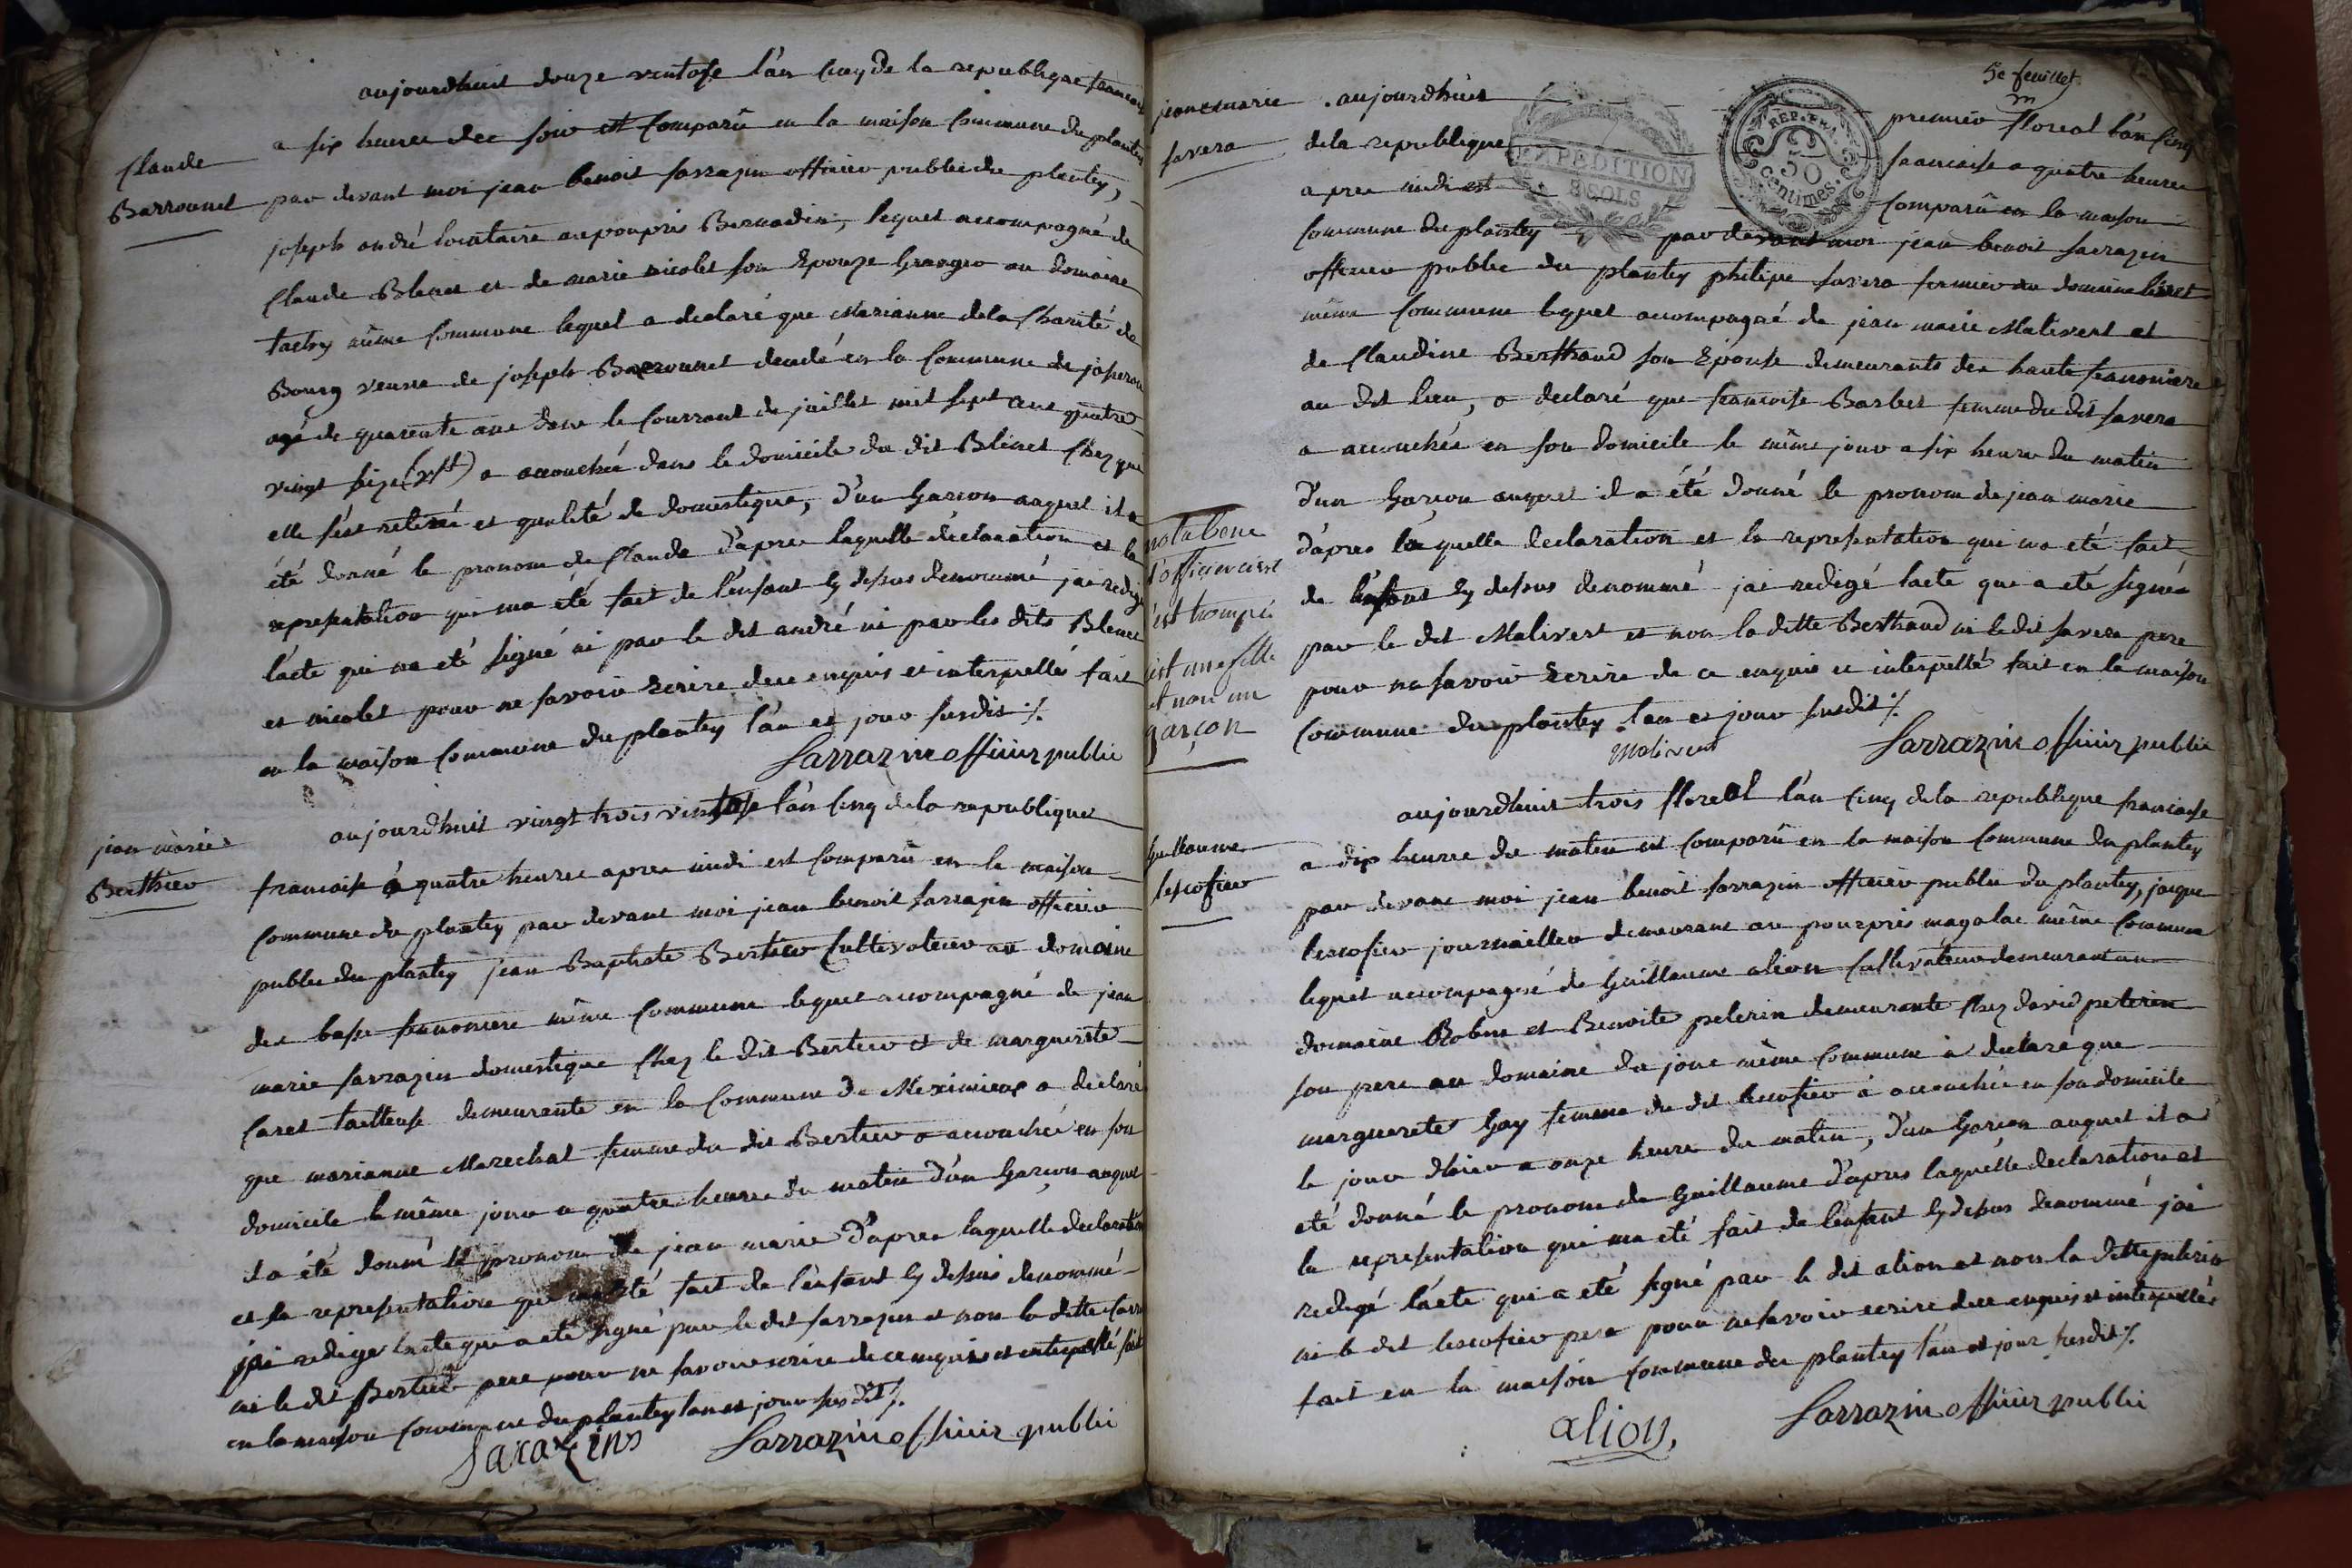 aujourdhuit douze ventose l'an cinq de la republique francaise
a six heures du soir est comparû en la maison commune du plantey
claude
Barrounet
par devant moi jean benoit sarrazin officier public du plantey,
joseph andré locataire au pourpris Bernadin, lequel accompagné de
claude Blenet et de marie nicolet son Epouze Granger au domaine
même commune lequel a declaré que Marianne dela Charité de
Bourg veuve de joseph Barrounet decedé en la commune de
agé de quarente ans dans le courrant de juillet mil sept cent quatre
vingt seize (vst) a accouchée dans le domicile du dit Blenet chez qui
elle s'est retirée et qualité de domestique, d'un Garcon auquel il a
été donné le pronom de claude d'apres laquelle declaration et la
representation qui ma été fait de l'enfant cy dessus denommé jai redigé
l'acte qui na été signé ni par le dit andré ni par les dits Blenet
et nicolet pour ne savoir Ecrire de ce enquis et interpellé fait
en la maison commune du plantey l'an et jour susdit ./.
Sarrazin officier public
jean marie
Berthier
aujourdhuit vingt trois ventose l'an cinq dela republique
francaise à quatre heures apres midi est comparû en la maison
commune du plantey par devant moi jean benoit sarrazin officier
public du plantey jean Baptiste Bertier cultivateur au domaine
des basse même commune lequel accompagné de jean
marie sarrazin domestique chez le dit Bertier et de marguerite
Caret tailleuse demeurante en la commune de Meximieux a declaré
que marianne Marechal femme du dit Bertier a accouchée en son
domicile le même jour a quatre heures du matin d'un Garcon auquel
il a été donné le pronom de jean marie d'apres laquelle declaration
et la representation qui ma été fait de l'enfant cy dessus denommé
jai redigé lacte qui a été signé par le dit sarrazin et non la ditte Caret
ni le dit Bertier pere pour ne savoir ecrire de ce enquis et interpellé fait
en la maison commune du plantey lan et jour susdit ./.
Sarazins Sarrazin officier public
5e feuillet
jeanemarie
favera
aujourdhuit premier floreal l'an cinq
dela republique francaise a quatre heures
apres midi est comparû en la maison
EXPEDITION
8 SOLS
REP. FRA.
50
centimes.
commune du plantey par devant moi jean benoit sarrazin
officier public du plantey philipe favera fermier au domaine
même commune lequel accompagné de jean marie Malivert et
de claudine Berthaud son Epouse demeurants des haute
au dit lieu, a declaré que francoise Barbet femme du dit favera
a accouchée en son domicile le même jour a six heures du matin
d'un Garçon auquel il a été donné le pronom de jean marie
nota bene
l'officier civil
s'est trompé
c'est une fille
et non un
garçon
d'apres laquelle declaration et la representation qui ma été fait
de l'enfant cy dessus denommé jai redigé lacte qui a été signée
par le dit Malivert et non la ditte Berthaud ni le dit favera pere
pour ne savoir Ecrire de ce enquis et interpellé fait en la maison
commune du plantey lan et jour susdit ./.
Malivert Sarrazin officier public
Guillaume
lescofier
aujourdhuit trois floreal l'an cinq dela republique francaise
a dix heures du matin est comparû en la maison commune du plantey
par devant moi jean benoit sarrazin officier public du plantey, jaque
lescofier journaillier demeurant au pourpris magalac même commune
lequel accompagné de Guillaume alion cultivateur demeurant au
domaine Robin et Benoite pelerin demeurante chez david pelerin
son pere au domaine du jone même commune a declaré que
marguerete Gay femme du dit lescofier a accouchée en son domicile
le jour dhier a onze heures du matin, d'un Garcon auquel il a
été donné le pronom de Guillaume d'apres laquelle declaration et
la representation qui ma été fait de l'enfant cy dessus denommé jai
redigé l'acte qui a été signé par le dit alion et non la ditte pelerin
ni le dit lescofier pere pour ne savoir ecrire de ce enquis et interpellé
fait en la maison commune du plantey l'an et jour susdit ./.
alion. Sarrazin officier public